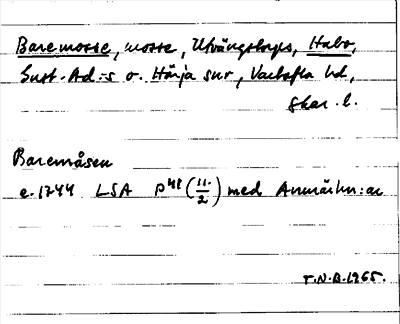 Baremosse, mosse, Utvängstorps, Habo,
Gust.-Ad.:s o. Härja snr, Vartofta hd,
Skar. l.
Baremåsen
e. 1744 LSA P48 (11/2) med Anmärkn:ar
T.N.B. 1965.